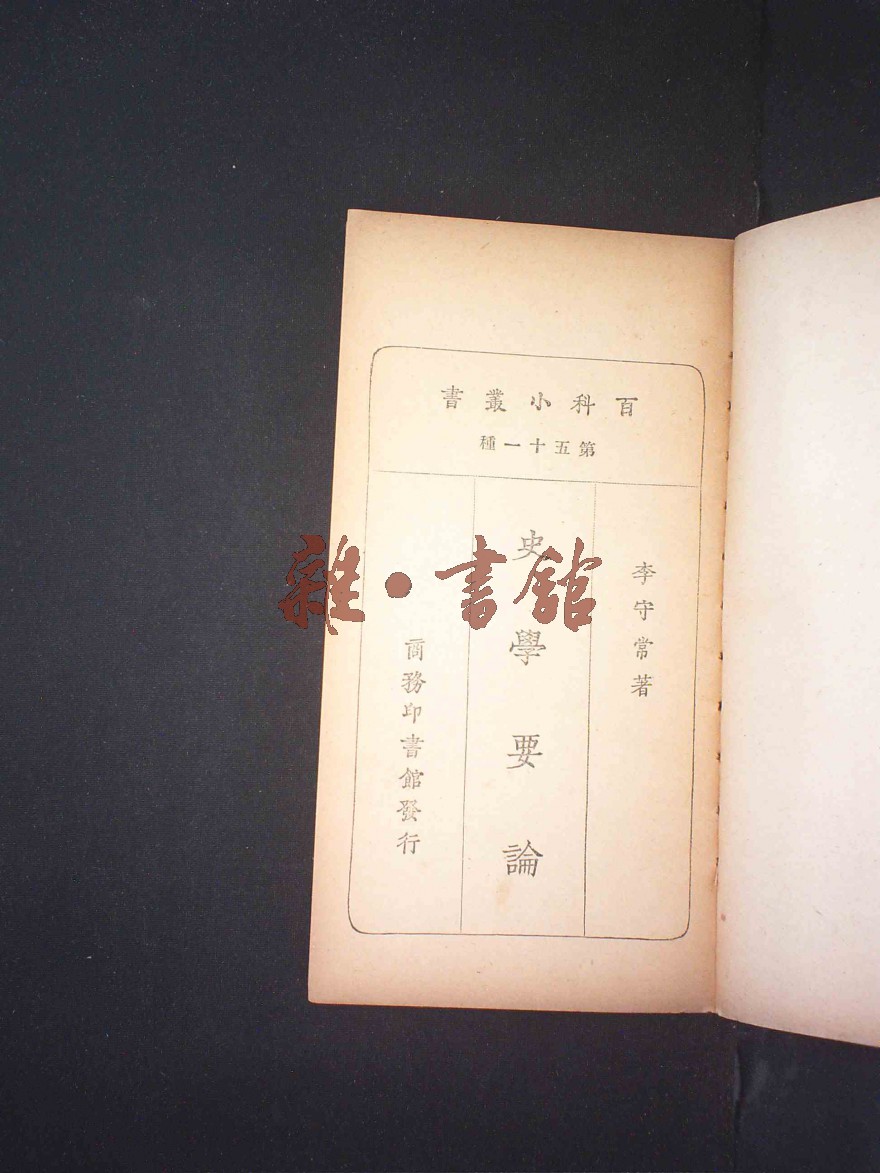 百科小叢書
第五十一種
李守常著
史學要論
商務印書館發行
雜·書館